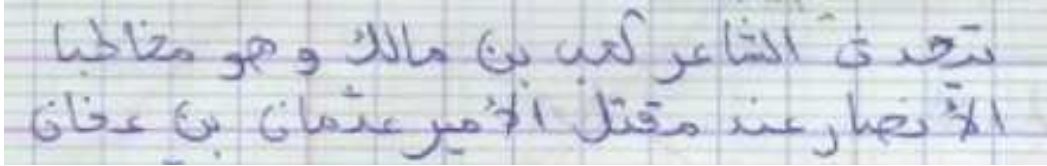 يتحدث الشاعر كعب بن مالك وهو مخاطبا
الأنصار عند مقتل الأمير عثمان بن عفان